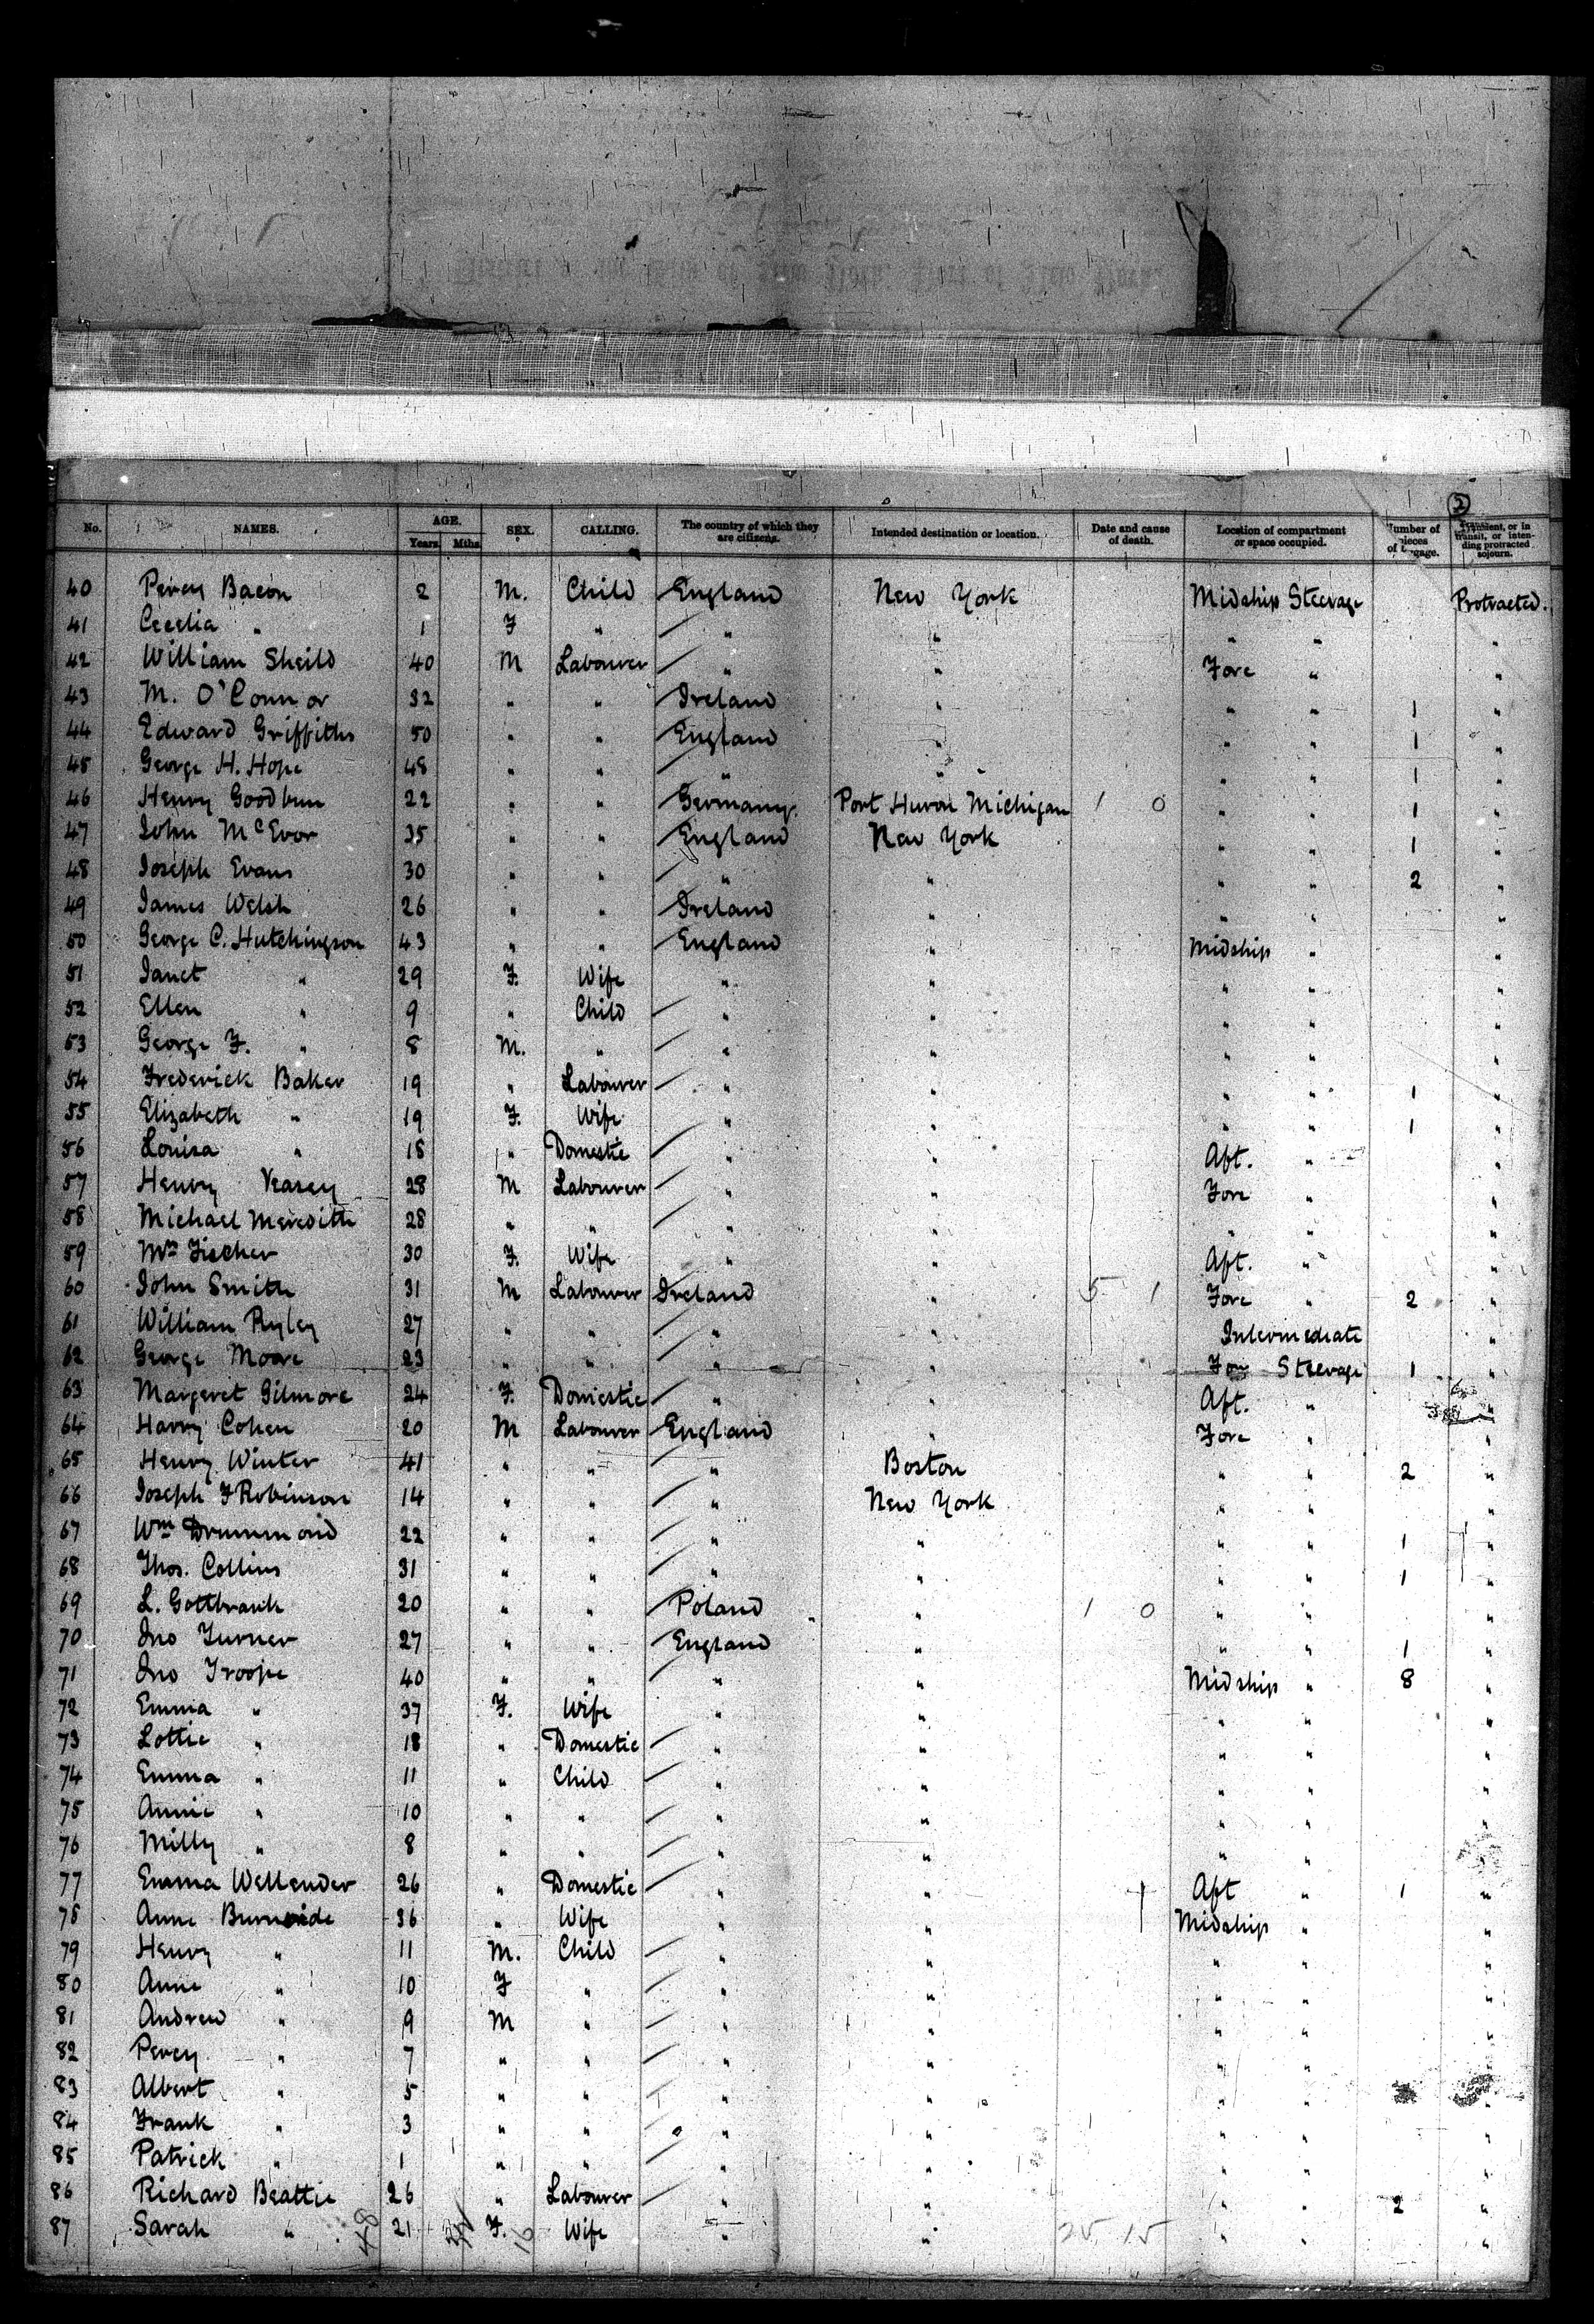 2
No. NAMES. AGE. Years Mths SEX. CALLING. The country of which they are citizens. Intended destination or location. Date and cause of death. Location of compartment or space occupied. Number of pieces of gage. Transient, or in transit, or intending protracted sojourn.
40 Percy Bacon 2 M. Child England New York Midship Steerage Protracted.
41 Cecelia " 1 F " " " " " "
42 William Sheild 40 M Labourer " " Fore " "
43 M. O'Connor 32 " " Ireland " " " 1 "
44 Edward Griffiths 50 " " England " " " 1 "
45 George H. Hope 48 " " " " " " 1 "
46 Henry Goodbun 22 " " Germany. Port Huron Michigan 1 0 " " 1 "
47 John McEvor 35 " " England New York " " 1 "
48 Joseph Evans 30 " " " " " " 2 "
49 James Welsh 26 " " Ireland " " " "
50 George C. Hutchingson 43 " " England " Midship " "
51 Janet " 29 F. Wife " " " " "
52 Ellen " 9 " Child " " " " "
53 George F. " 8 M. " " " " " "
54 Frederick Baker 19 " Labourer " " " " 1 "
55 Elizabeth " 19 F. Wife " " " " 1 "
56 Louisa " 18 " Domestic " " Aft. " "
57 Henry Veasey 28 M Labourer " " Fore " "
58 Michael Meredith 28 " " " " " " "
59 Mrs Fischer 30 F. Wife " " Aft. " "
60 John Smith 31 M Labourer Ireland " 5 1 Fore " 2 "
61 William Ryley 27 " " " " Intermediate "
62 George Moore 23 " " " " Fore Steerage 1 "
63 Margaret Gilmore 24 F. Domestic " " Aft. " "
64 Harry Cohen 20 M Labourer England " Fore " "
65 Henry Winter 41 " " " Boston " " 2 "
66 Joseph F Robinson 14 " " " New York " " "
67 Wm Drummond 22 " " " " " " 1 "
68 Thos. Collins 31 " " " " " " 1 "
69 L. Gottbrank 20 " " Poland " 1 0 " " "
70 Jno Turner 27 " " England " " " 1 "
71 Jno Troope 40 " " " " Midship " 8 "
72 Emma " 37 F. Wife " " " " "
73 Lottie " 18 " Domestic " " " " "
74 Emma " 11 " Child " " " " "
75 Annie " 10 " " " " " " "
76 Milly " 8 " " " " " " "
77 Emma Wellender 26 " Domestic " " Aft " 1 "
78 Anne Burnside 36 " Wife " " Midship " "
79 Henry " 11 M. Child " " " " "
80 Anne " 10 F " " " " " "
81 Andrew " 9 M " " " " " "
82 Percy " 7 " " " " " " "
83 Albert " 5 " " " " " " "
84 Frank " 3 " " " " " " "
85 Patrick " 1 " " " " " " "
86 Richard Beattie 26 " Labourer " " " " 2 "
87 Sarah " 21 F. Wife " " " " "
48 16 25 15